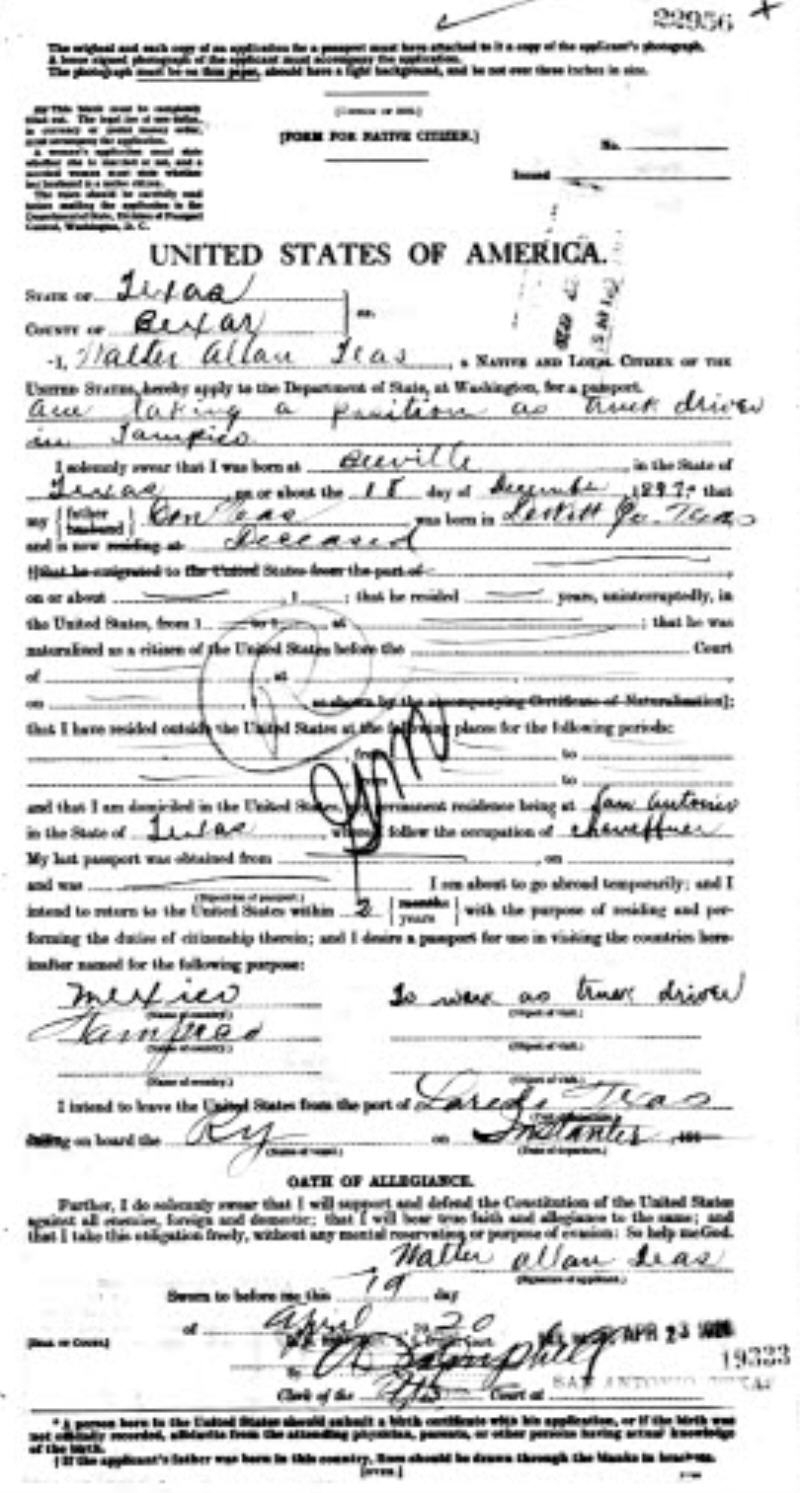 22956
The original and each copy of an application for a passport must have attached to it a copy of the applicant's photograph.
A loose signed photograph of the applicant must accompany the application.
The photograph must be on thin paper, should have a light background, and be not over three inches in size.
[FORM FOR NATIVE CITIZEN.]
No.
Issued
UNITED STATES OF AMERICA.
STATE OF Texas
COUNTY OF Bexar
ss.
I, Walter Allan Teas, a NATIVE AND LOYAL CITIZEN OF THE
UNITED STATES, hereby apply to the Department of State, at Washington, for a passport.
am taking a position as truck driver
in Tampico
I solemnly swear that I was born at Beeville, in the State of
Texas on or about the 18 day of December, 1897, that
my father husband Teas was born in Co. Texas
and is now residing at Deceased
that he emigrated to the United States from the port of
on or about , 1 ; that he resided years, uninterruptedly, in
the United States, from 1 to 1 , at ; that he was
naturalized as a citizen of the United States before the Court
of , at ,
on , as shown by the accompanying Certificate of Naturalization];
that I have resided outside the United States at the following places for the following periods:
, from to
to
and that I am domiciled in the United States, permanent residence being at San Antonio
in the State of Texas, where I follow the occupation of chauffeur
My last passport was obtained from , on ,
and was I am about to go abroad temporarily; and I
(Disposition of passport.)
intend to return to the United States within 2 months years with the purpose of residing and per-
forming the duties of citizenship therein; and I desire a passport for use in visiting the countries here-
inafter named for the following purpose:
Mexico To work as truck driver
(Name of country.) (Object of visit.)
Tampico
(Name of country.) (Object of visit.)
(Name of country.) (Object of visit.)
I intend to leave the United States from the port of Laredo Texas
sailing on board the Ry on Instanter, 191
(Name of vessel.) (Date of departure.)
OATH OF ALLEGIANCE.
Further, I do solemnly swear that I will support and defend the Constitution of the United States
against all enemies, foreign and domestic; that I will bear true faith and allegiance to the same; and
that I take this obligation freely, without any mental reservation or purpose of evasion: So help me God.
Walter Allan Teas
(Signature of applicant.)
Sworn to before me this 19 day
of April 20
[SEAL OF COURT.]
APR 23 1920
19333
Clerk of the US Court at SAN ANTONIO TEXAS
* A person born in the United States should submit a birth certificate with his application, or if the birth was
not officially recorded, affidavits from the attending physician, parents, or other persons having actual knowledge
of the birth.
† If the applicant's father was born in this country, lines should be drawn through the blanks in brackets.
[OVER.]